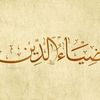 ضِيَاءُ الدِّينِ